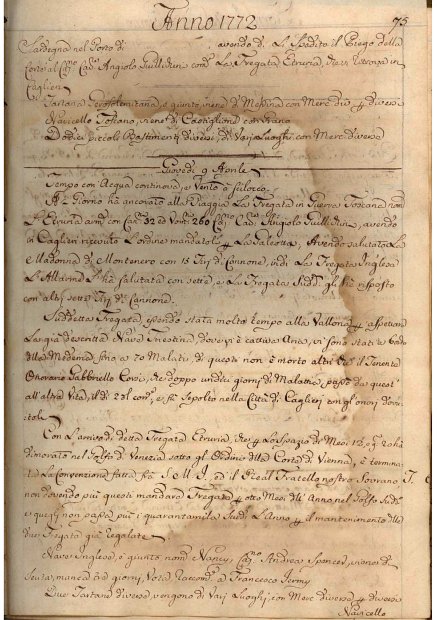 Anno 1772
75
Sardegna nel Porto di avendo d. La Spedito il Piego della
Corte al Cap.no Cav. Angiolo Guillichini com.e La Fregata Etruria, che si ritrova in
Caglieri
Tartana Gerosolemitana, è giunto, viene di Messina con Merc. div.e p diversi
Navicello Toscano, viene di Castiglione con Grano
Dodici piccoli Bastimenti diversi di Varj Luoghi, con Merc. diverse
Giovedì 9 Aprile
Tempo con Acqua continova, e Vento a Scilocco
A Giorno ha ancorato alla Spiaggia La Fregata di Guerra Toscana nom.a
L'Etruria arm. con Can. 32 ed Uom. 260 Cap.no Cav. Angiolo Guillichini, avendo
in Caglieri ricevuto L'ordine mandatoli p La Galeotta, Avendo salutato La
Madonna di Montenero con 15 Tiri di Cannone, indi La Fregata Inglese
L'Allarme L'ha salutata con sette, e La Fregata Sudd.a gli ha risposto
con altri sette Tiri di Cannone.
Suddetta Fregata essendo stata molto tempo alla Vallona p aspettare
La già descritta Nave Trestina, dove vi è cattiva Aria, vi sono stati a bordo
della Medesima, fino a 70 Malati, di questi non è morto altri che il Tenente
Onorario Gabbriello Corsi, che doppo undici giorni di Malattia, passò da quest'
all'altra Vita, il dì 28 com.e, e fu Sepolto nella Città di Caglieri con gli onori dovu-
toli
Con L'arrivo di detta Fregata Etruria, che p Lo Spazio di Mesi 12, q.ta ha
dimorato nel Golfo di Venezia sotto gli Ordini della Corte di Vienna, è termina-
ta La Convenzione fatta fra S. M. I., ed il Reall Fratello nostro Sovrano,
non dovendo più questi mandare Fregate p otto Mesi dell'Anno nel Golfo Sud.o
e quegli non passa più i quarantamila Scudi L'Anno p il mantenimento delle
due Fregate già Regalate
Nave Inglese, è giunto nom.a Nancy, Cap.no Andrea Spencer, viene di
manca giorni, Vota, Raccom. a Francesco Jermy
Due Tartane diverse, vengono di Varj Luoghi, con Merc. diverse p diversi
Navicello